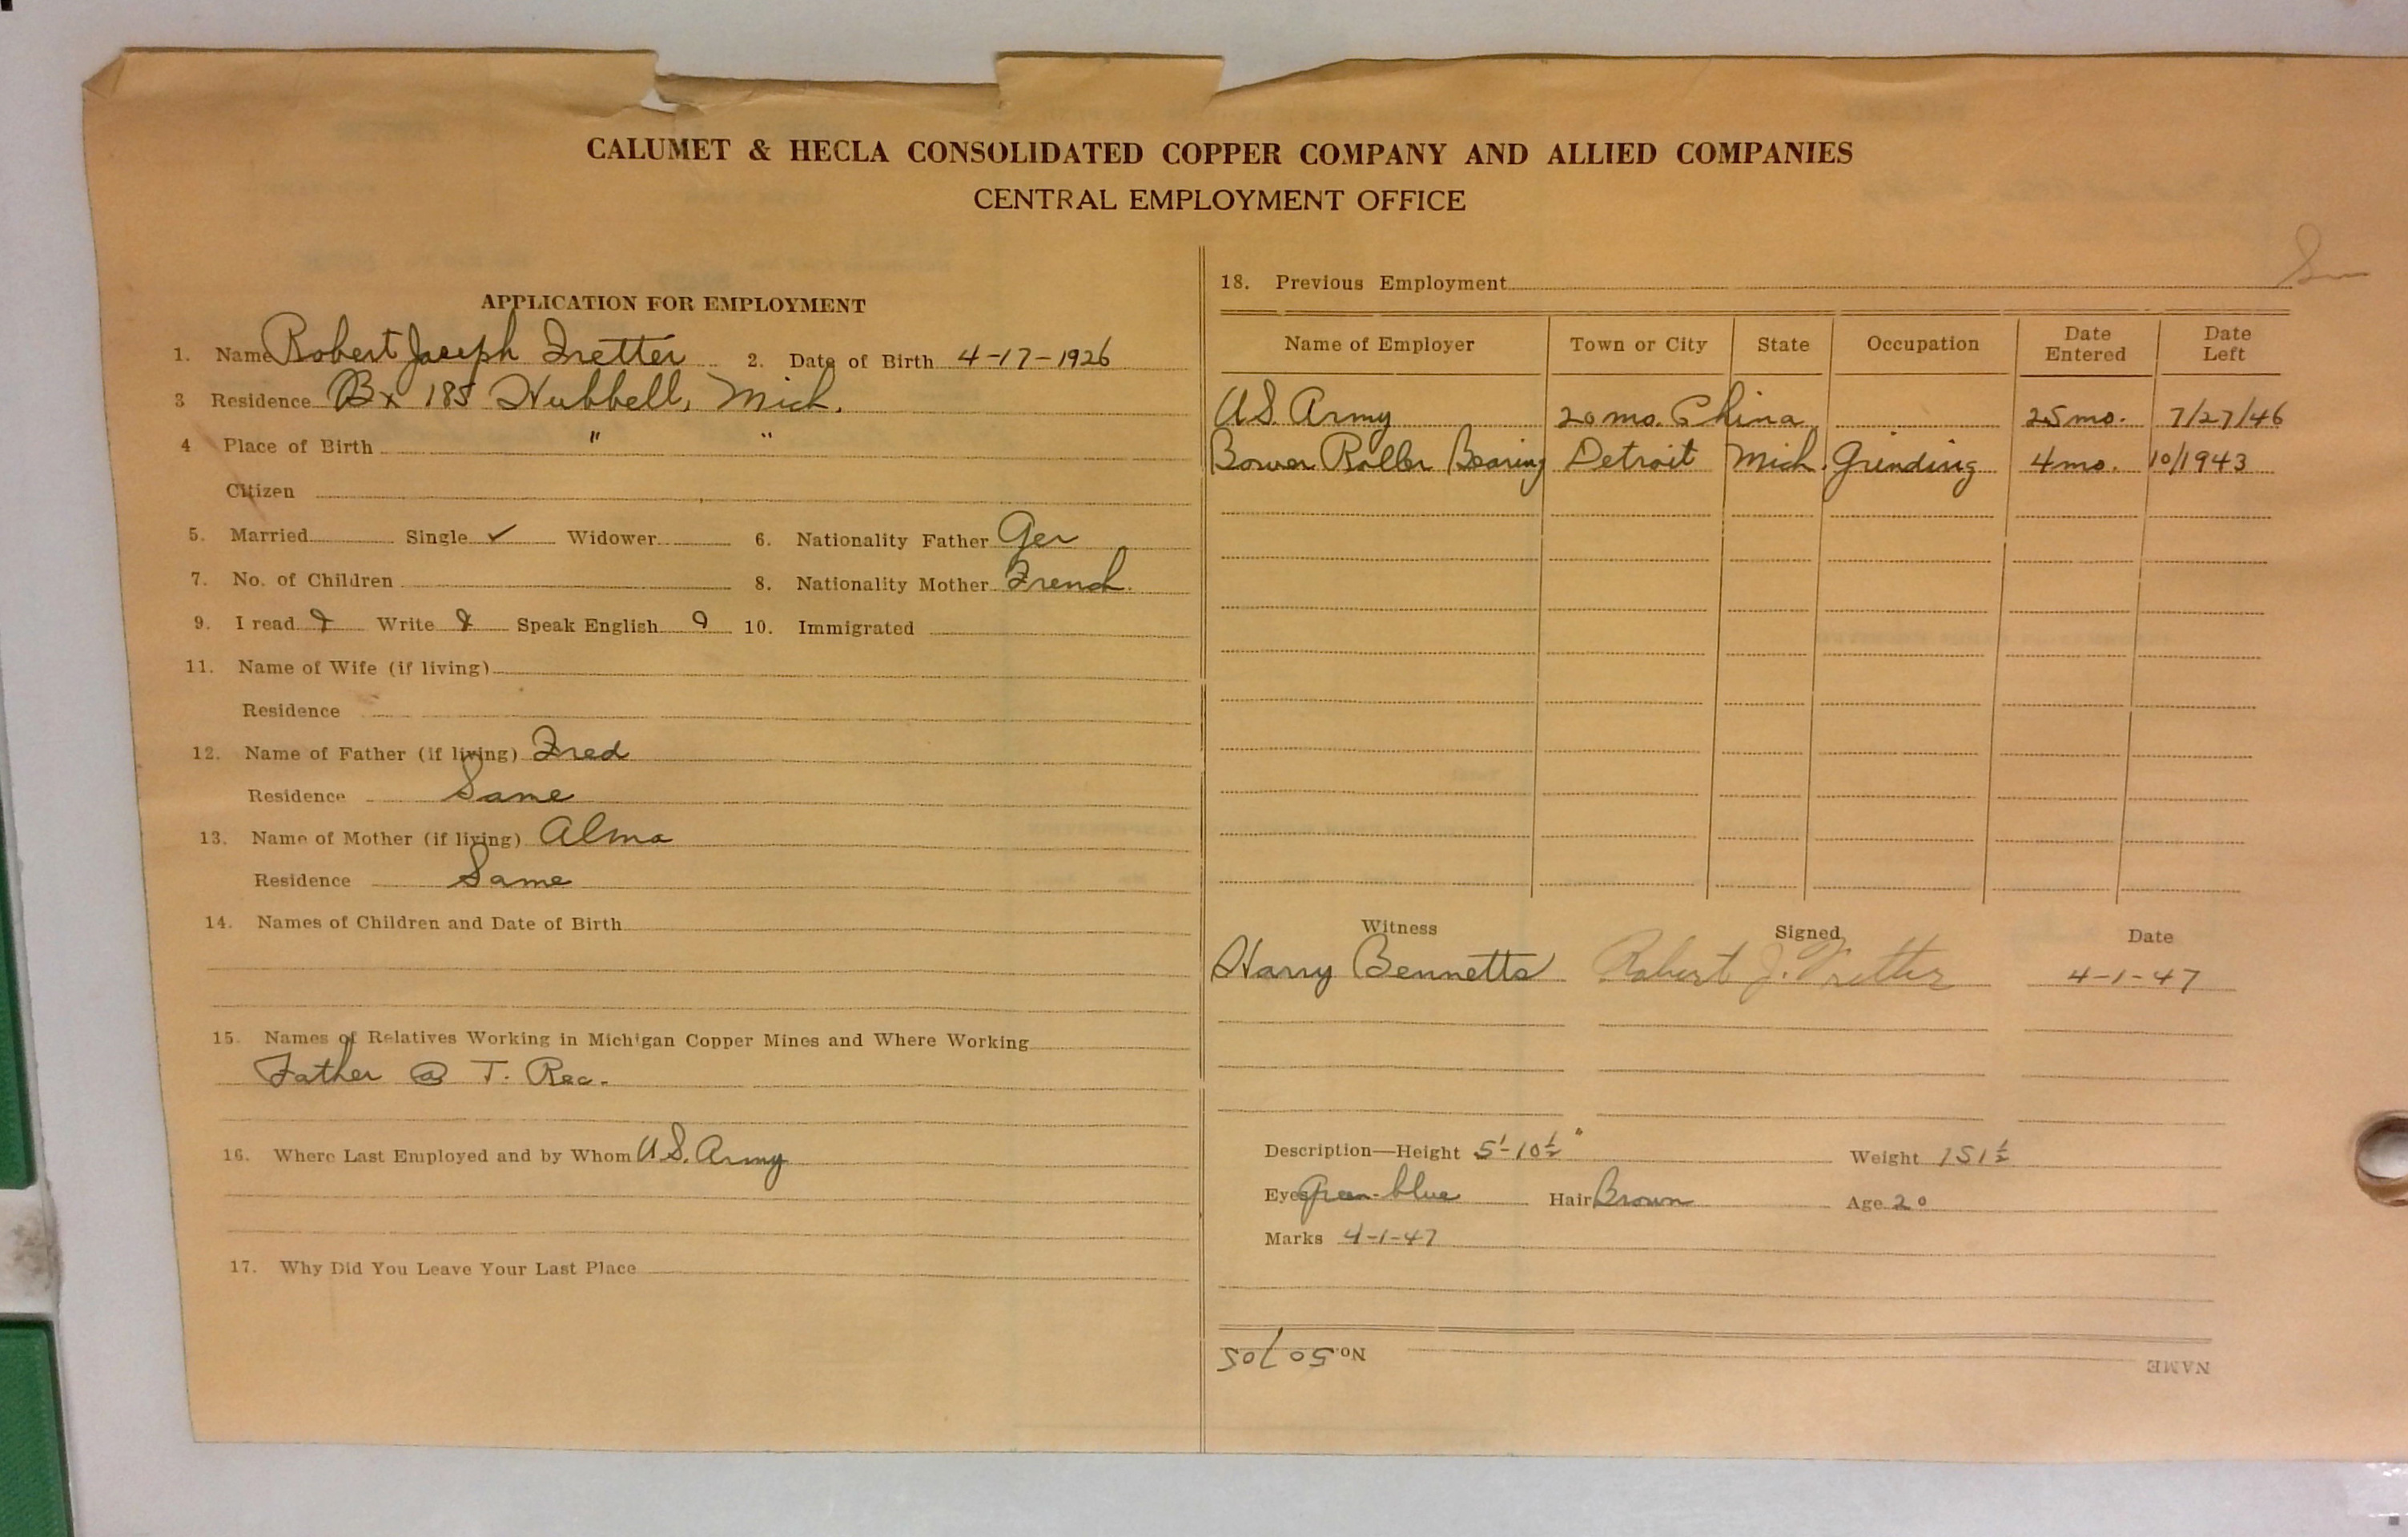 CALUMET & HECLA CONSOLIDATED COPPER COMPANY AND ALLIED COMPANIES
CENTRAL EMPLOYMENT OFFICE
APPLICATION FOR EMPLOYMENT
1. Name Robert Joseph Fretter 2. Date of Birth 4-17-1926
3 Residence Bx 185 Hubbell, Mich.
4 Place of Birth " "
Citizen
5. Married Single ✓ Widower 6. Nationality Father Ger
7. No. of Children 8. Nationality Mother French.
9. I read Write Speak English 10. Immigrated
11. Name of Wife (if living)
Residence
12. Name of Father (if living) Fred
Residence Same
13. Name of Mother (if living) Alma
Residence Same
14. Names of Children and Date of Birth
15. Names of Relatives Working in Michigan Copper Mines and Where Working
Father @ T. Rec.
16. Where Last Employed and by Whom U.S. Army
17. Why Did You Leave Your Last Place
18. Previous Employment
Name of Employer Town or City State Occupation Date Entered Date Left
U.S. Army 20 mo. China 25 mo. 7/27/46
Bower Roller Bearing Detroit Mich. Grinding 4 mo. 10/1943
Witness Signed Date
Harry Bennetts Robert J. Fretter 4-1-47
Description—Height 5'-10½" Weight 151½
Eyes Green-blue Hair Brown Age 20
Marks 4-1-47
NAME No. 50705